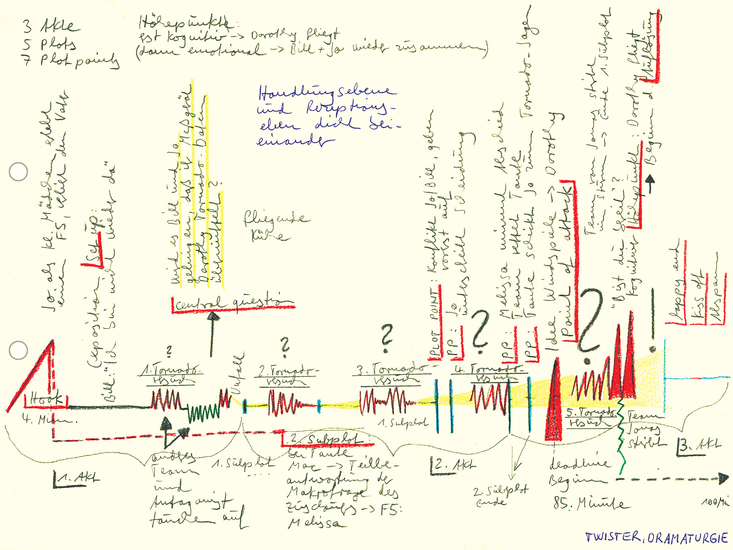 3 Akte
5 Plots
7 Plotpoints
Höhepunkte:
erst kognitiv → Dorothy fliegt
(dann emotional → Bill + Jo wieder zusammen)
Handlungsebene
und Rezeptions-
eben dicht bei-
einander
Jo als kl. Mädchen erlebt
einen F5, verliert den Vater
Exposition / Set up:
Bill: "Ich bin nicht wieder da"
wird es Bill und Jo
gelingen, daß ihr Meßgerät
Dorothy Tornado-Daten
übermittelt?
central question
fliegende
Kühe
PLOT POINT: Konflikte Jo/Bill, geben
PP: Jo unterschreibt Scheidung
PP: Melissa nimmt Abschied
Team rettet Tante
PP: Tante schickt Jo zum Tornado-Jagen
Idee Windspiele → Dorothy
Point of attack
Team von Jonas stirbt
im Sturm → Ende 1. Subplot
kognitiver Höhepunkt: Dorothy fliegt
→ Beginn d. Auflösung
happy end
Kiss off
Abspann
Hook
4. Min.
?
1. Tornado-
Besuch
Unfall
?
2. Tornado-
Besuch
?
3. Tornado-
Besuch
1. Subplot
?
4. Tornado-
Besuch
?
5. Tornado-
Besuch
!
Team
Jonas
stirbt
1. Akt
anderes
Team
und
Antagonist
tauchen auf
1. Subplot
2. Subplot
bei Tante
Mac → Teilbe-
antwortung der
Makrofrage des
Zuschauers → F5:
Melissa
2. Akt
2. Subplot
Ende
deadline
Beginn
85. Minute
3. Akt
TWISTER, DRAMATURGIE